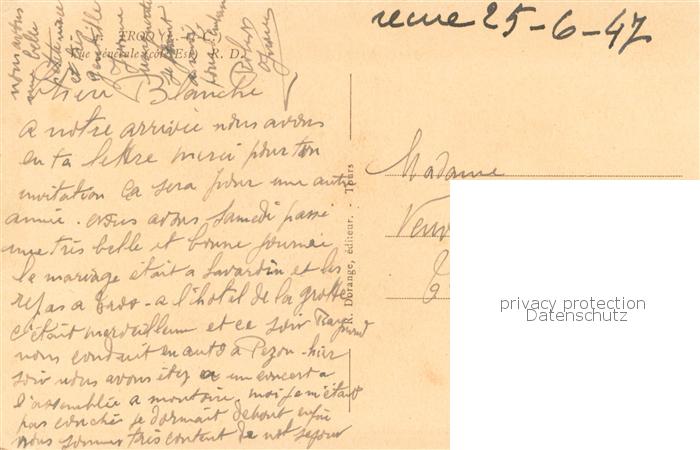 recue 25-6-47
TROO
Vue générale (côté Est) R. D.
Chere Blanche
a notre arrivée nous avons
eu ta lettre merci pour ton
invitation ça sera pour une autre
année. nous avons samedi passé
une très belle et bonne journée
le mariage était a Lavardin et les
repas a Troo - a l'hotel de la grotte
c'était merveilleux et ce soir Raymond
nous conduit en auto a Pezou - hier
soir nous avons étez a un concert a
l'assemblée a montoire, moi je m'était
pas couchée je dormait debout enfin
nous sommes très content de not sejour
nous avons
une belle
et
gentille
pour
R. Dorange, éditeur. Tours
Madame
Veuv
privacy protection
Datenschutz